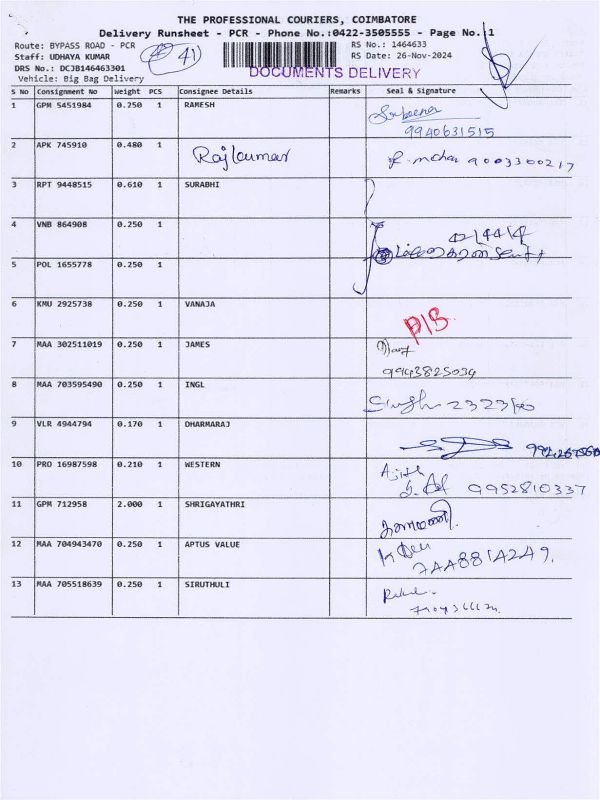 THE PROFESSIONAL COURIERS, COIMBATORE
Delivery Runsheet - PCR - Phone No.:0422-3505555 - Page No. 1
Route: BYPASS ROAD - PCR
RS No.: 1464633
Staff: UDHAYA KUMAR
41
RS Date: 26-Nov-2024
DRS No.: DCJB146463301
DOCUMENTS DELIVERY
Vehicle: Big Bag Delivery
S No Consignment No Weight PCS Consignee Details Remarks Seal & Signature
1 GPM 5451984 0.250 1 RAMESH
9940631515
2 APK 745910 0.480 1 Rajkumar 9003300217
3 RPT 9448515 0.610 1 SURABHI
4 VNB 864908 0.250 1
5 POL 1655778 0.250 1
6 KMU 2925738 0.250 1 VANAJA
7 MAA 302511019 0.250 1 JAMES
9943825034
8 MAA 703595490 0.250 1 INGL
9 VLR 4944794 0.170 1 DHARMARAJ
10 PRO 16987598 0.210 1 WESTERN
9952810337
11 GPM 712958 2.000 1 SHRIGAYATHRI
12 MAA 704943470 0.250 1 APTUS VALUE
13 MAA 705518639 0.250 1 SIRUTHULI